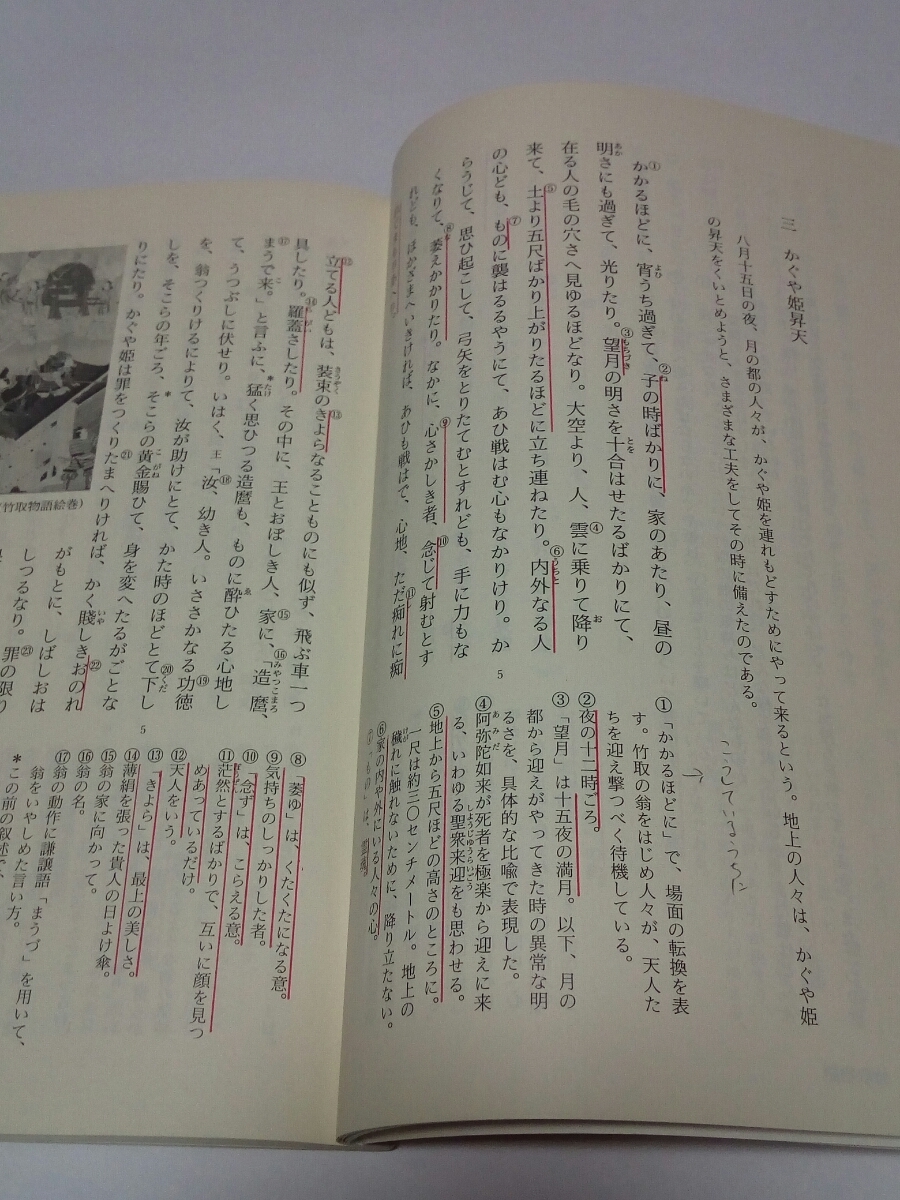 三　かぐや姫昇天
八月十五日の夜、月の都の人々が、かぐや姫を連れもどすためにやって来るという。地上の人々は、かぐや姫
の昇天をくいとめようと、さまざまな工夫をしてその時に備えたのである。
①かかるほどに、宵うち過ぎて、②子の時ばかりに、家のあたり、昼の
明さにも過ぎて、光りたり。③望月の明さを十合はせたるばかりにて、
在る人の毛の穴さへ見ゆるほどなり。大空より、人、④雲に乗りて降り
来て、⑤土より五尺ばかり上がりたるほどに立ち連ねたり。⑥内外なる人
の心ども、⑦ものに襲はるるやうにて、あひ戦はむ心もなかりけり。か
らうじて、思ひ起こして、弓矢をとりたてむとすれども、手に力もな
くなりて、⑧萎えかかりたり。なかに、⑨心さかしき者、⑩念じて射むとす
れども、ほかざまへいきければ、あひも戦はで、心地、ただ⑪痴れに痴
5
①「かかるほどに」で、場面の転換を表
す。竹取の翁をはじめ人々が、天人た
ちを迎え撃つべく待機している。
②夜の十二時ごろ。
③「望月」は十五夜の満月。以下、月の
都から迎えがやってきた時の異常な明
るさを、具体的な比喩で表現した。
④阿弥陀如来が死者を極楽から迎えに来
る、いわゆる聖衆来迎をも思わせる。
⑤地上から五尺ほどの高さのところに。
一尺は約三〇センチメートル。地上の
穢れに触れないために、降り立たない。
⑥家の内や外にいる人々の心。
⑦「もの」は、
こうしているうちに
⑫立てる人どもは、装束の⑬きよらなることものにも似ず、飛ぶ車一つ
具したり。⑭羅蓋さしたり。その中に、王とおぼしき人、⑮家に、「⑯造麿、
⑰まうで来。」と言ふに、*猛く思ひつる造麿も、ものに酔ひたる心地し
て、うつぶしに伏せり。いはく、王「⑱汝、幼き人。いささかなる⑲功徳
を、翁つくりけるによりて、汝が助けにとて、かた時のほどとて⑳下し
しを、そこらの年ごろ、*そこらの黄金賜ひて、身を変へたるがごとな
りにたり。かぐや姫は罪をつくり㉑たまへりければ、かく賤しき㉒おのれ
がもとに、しばしおは
しつるなり。㉓罪の限り
5
竹取物語絵巻)
⑧「萎ゆ」は、くたくたになる意。
⑨気持ちのしっかりした者。
⑩「念ず」は、こらえる意。
⑪茫然とするばかりで、互いに顔を見つ
めあっているだけ。
⑫天人をいう。
⑬「きよら」は、最上の美しさ。
⑭薄絹を張った貴人の日よけ傘。
⑮翁の家に向かって。
⑯翁の名。
⑰翁の動作に謙譲語「まうづ」を用いて、
翁をいやしめた言い方。
*この前の叙述で、